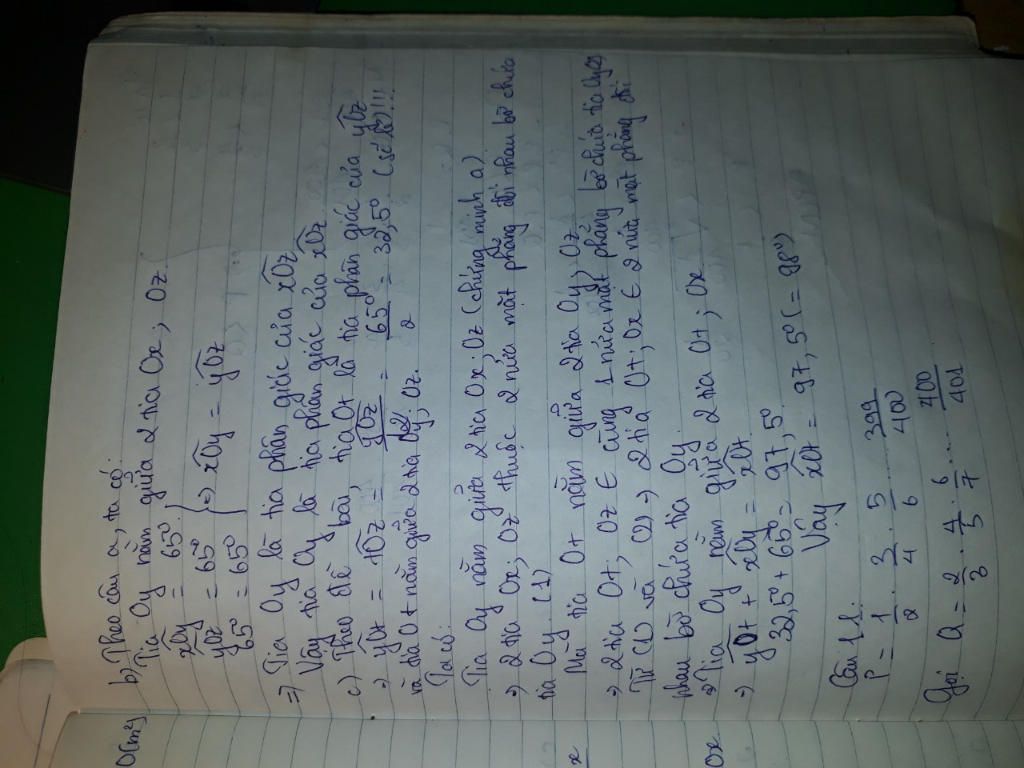 b, Theo câu a, ta có:
Tia Oy nằm giữa 2 tia Ox; Oz
xOy = 65°
yOz = 65° } => xOy = yOz
65° = 65°
=> Tia Oy là tia phân giác của xOz
Vậy tia Oy là tia phân giác của xOz
c) Theo đề bài, tia Ot là tia phân giác của yOz
=> yOt = tOz = yOz/2 = 65°/2 = 32,5° (số lẻ)!!!
và tia Ot nằm giữa 2 tia Oy; Oz.
Ta có:
Tia Oy nằm giữa 2 tia Ox; Oz (chứng minh a)
=> 2 tia Ox; Oz thuộc 2 nửa mặt phẳng đối nhau bờ chứa
tia Oy. (1)
Mà tia Ot nằm giữa 2 tia Oy; Oz
=> 2 tia Ot; Oz ∈ cùng 1 nửa mặt phẳng bờ chứa tia Oy (2)
Từ (1) và (2) => 2 tia Ot; Ox ∈ 2 nửa mặt phẳng đối
nhau bờ chứa tia Oy.
=> Tia Oy nằm giữa 2 tia Ot; Ox
=> yOt + xOy = xOt
32,5° + 65° = 97,5°
Vậy xOt = 97,5° (= 98°)
Câu 11.
P = 1/2 . 3/4 . 5/6 ..... 399/400
Gọi Q = 2/3 . 4/5 . 6/7 ..... 400/401
0(m²)
x
Ox